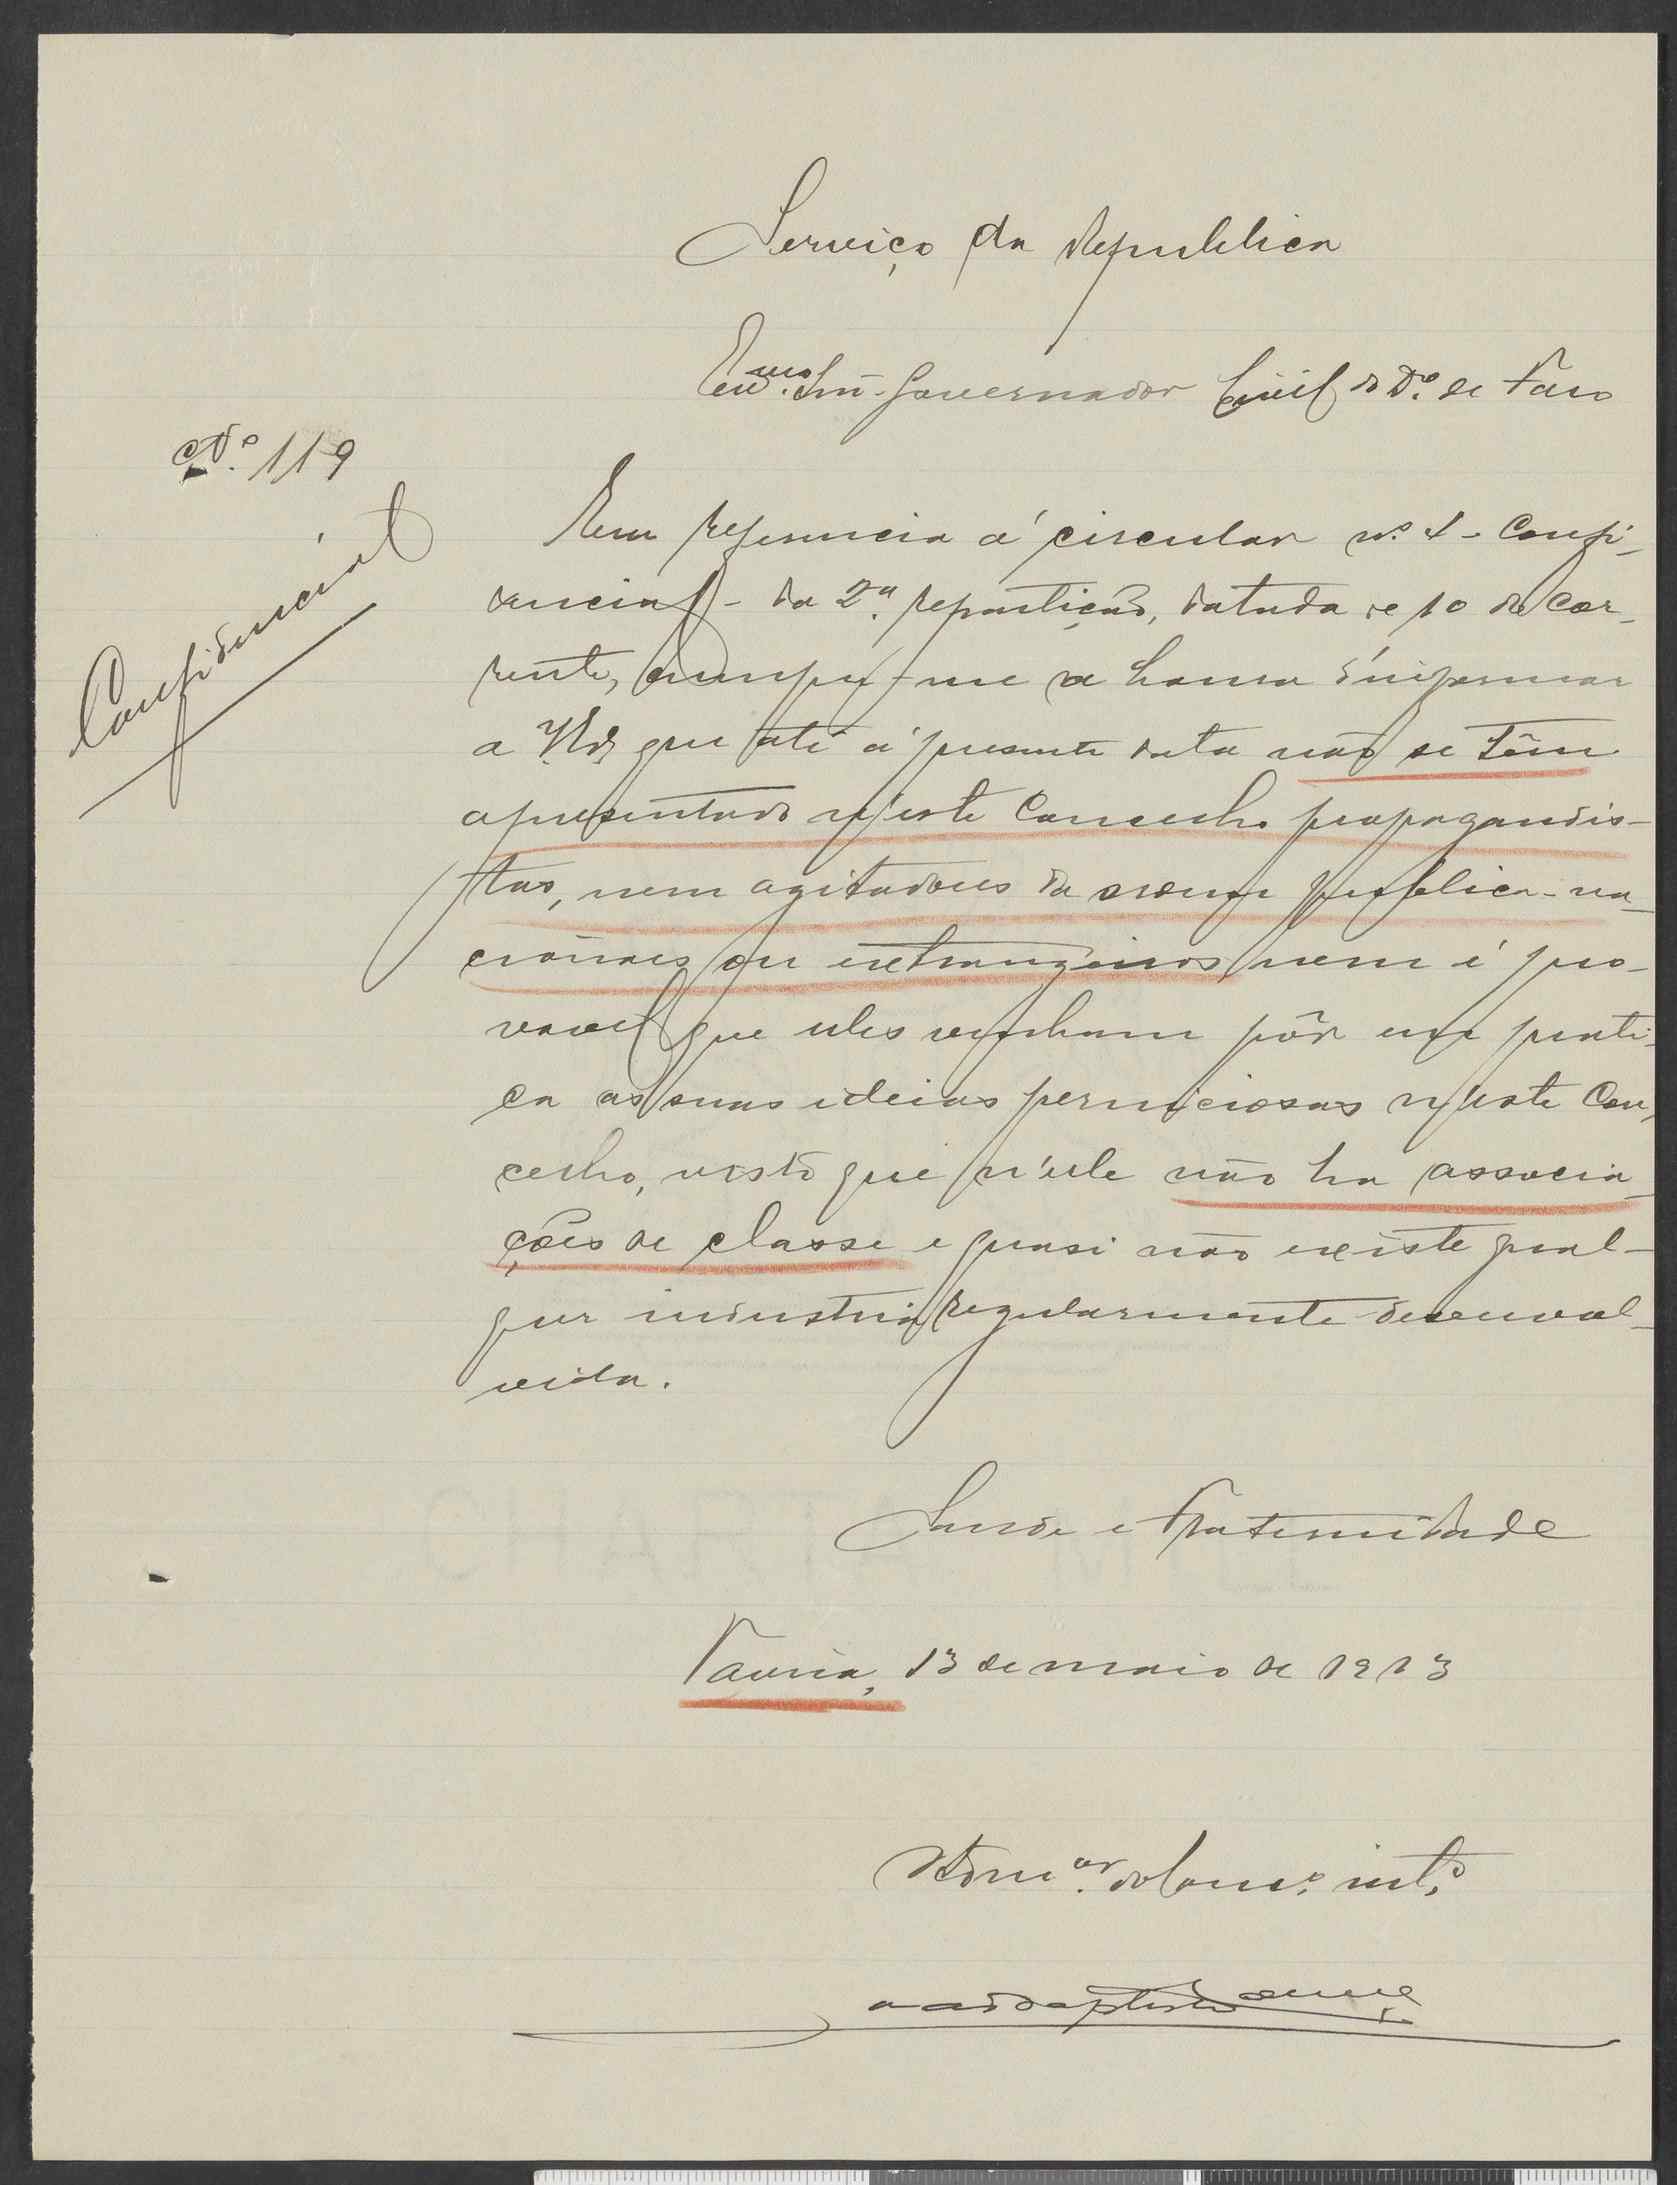 Serviço da Republica
Exmo. Snr. Governador Civil do D.º de Faro
N.º 119
Confidencial
Em referencia á circular n.º 4 - Confi-
dencial - da 2.ª repartição, datada de 10 do cor-
rente, cumpre-me a honra d'informar
a V. Ex.ª que até á presente data não se têm
apresentado n'este Concelho propagandis-
tas, nem agitadores da ordem publica - na-
cionaes ou extrangeiros nem é pro-
vavel que eles venham pôr em prati-
ca as suas ideias perniciosas n'este Con-
celho, visto que n'ele não ha associa-
ções de classe e quasi não existe qual-
quer industria regularmente desenvol-
vida.
Saude e Fraternidade
Tavira, 13 de maio de 1913
O Adm.or do Conc.º int.º